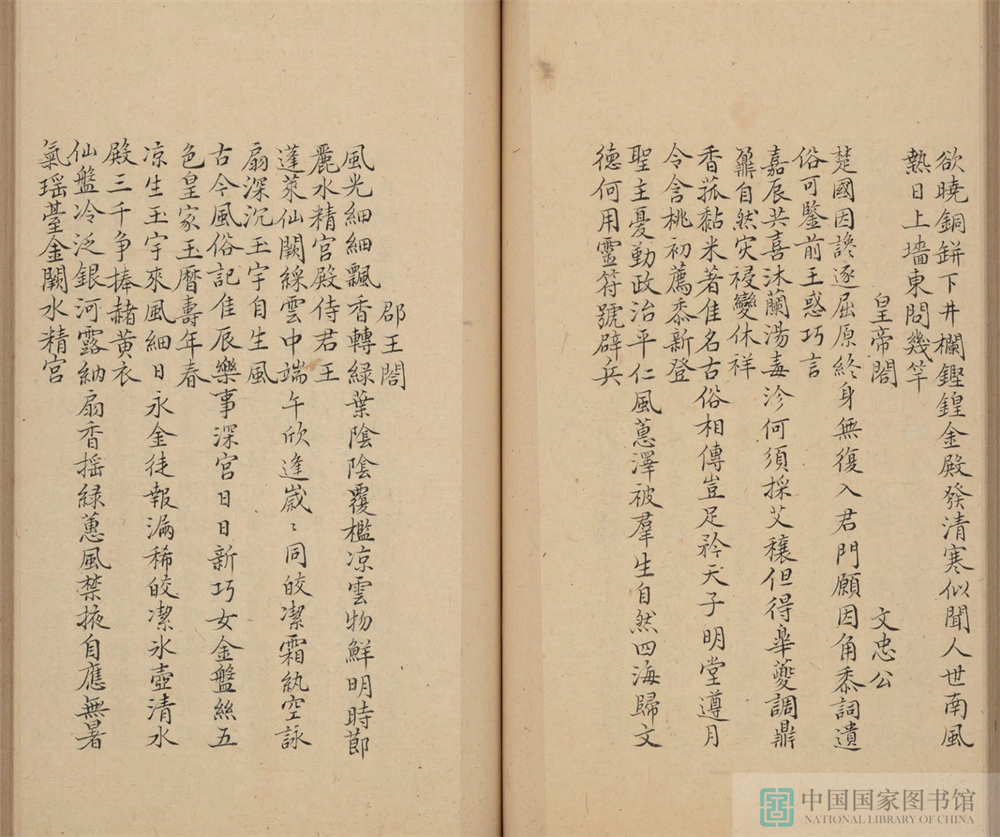 欲曉銅缾下井欄鏗鍠金殿發清寒似聞人世南風
熱日上墻東問幾竿
皇帝閤
文忠公
楚國因讒逐屈原終身無復入君門願因角黍詞遺
俗可鑒前王惑巧言
嘉辰共喜沐蘭湯毒沴何須採艾穰但得皋夔調鼎
鼐自然灾祲變休祥
香菰黏米著佳名古俗相傳豈足矜天子明堂遵月
令含桃初薦黍新登
聖主憂勤政治平仁風蕙澤被羣生自然四海歸文
德何用靈符號辟兵
郡王閤
風光細細飄香轉綠葉陰陰覆檻凉雲物鮮明時節
麗水精宮殿侍君王
蓬萊仙闕綵雲中端午欣逢歲〻同皎潔霜紈空詠
扇深沉玉宇自生風
古今風俗記佳辰樂事深宮日日新巧女金盤絲五
色皇家玉曆壽年春
凉生玉宇來風細日永金徒報漏稀皎潔氷壺清水
殿三千争捧赭黄衣
仙盤冷泛銀河露納扇香摇緑蕙風禁掖自應無暑
氣瑶臺金闕水精宮
中国国家图书馆
NATIONAL LIBRARY OF CHINA